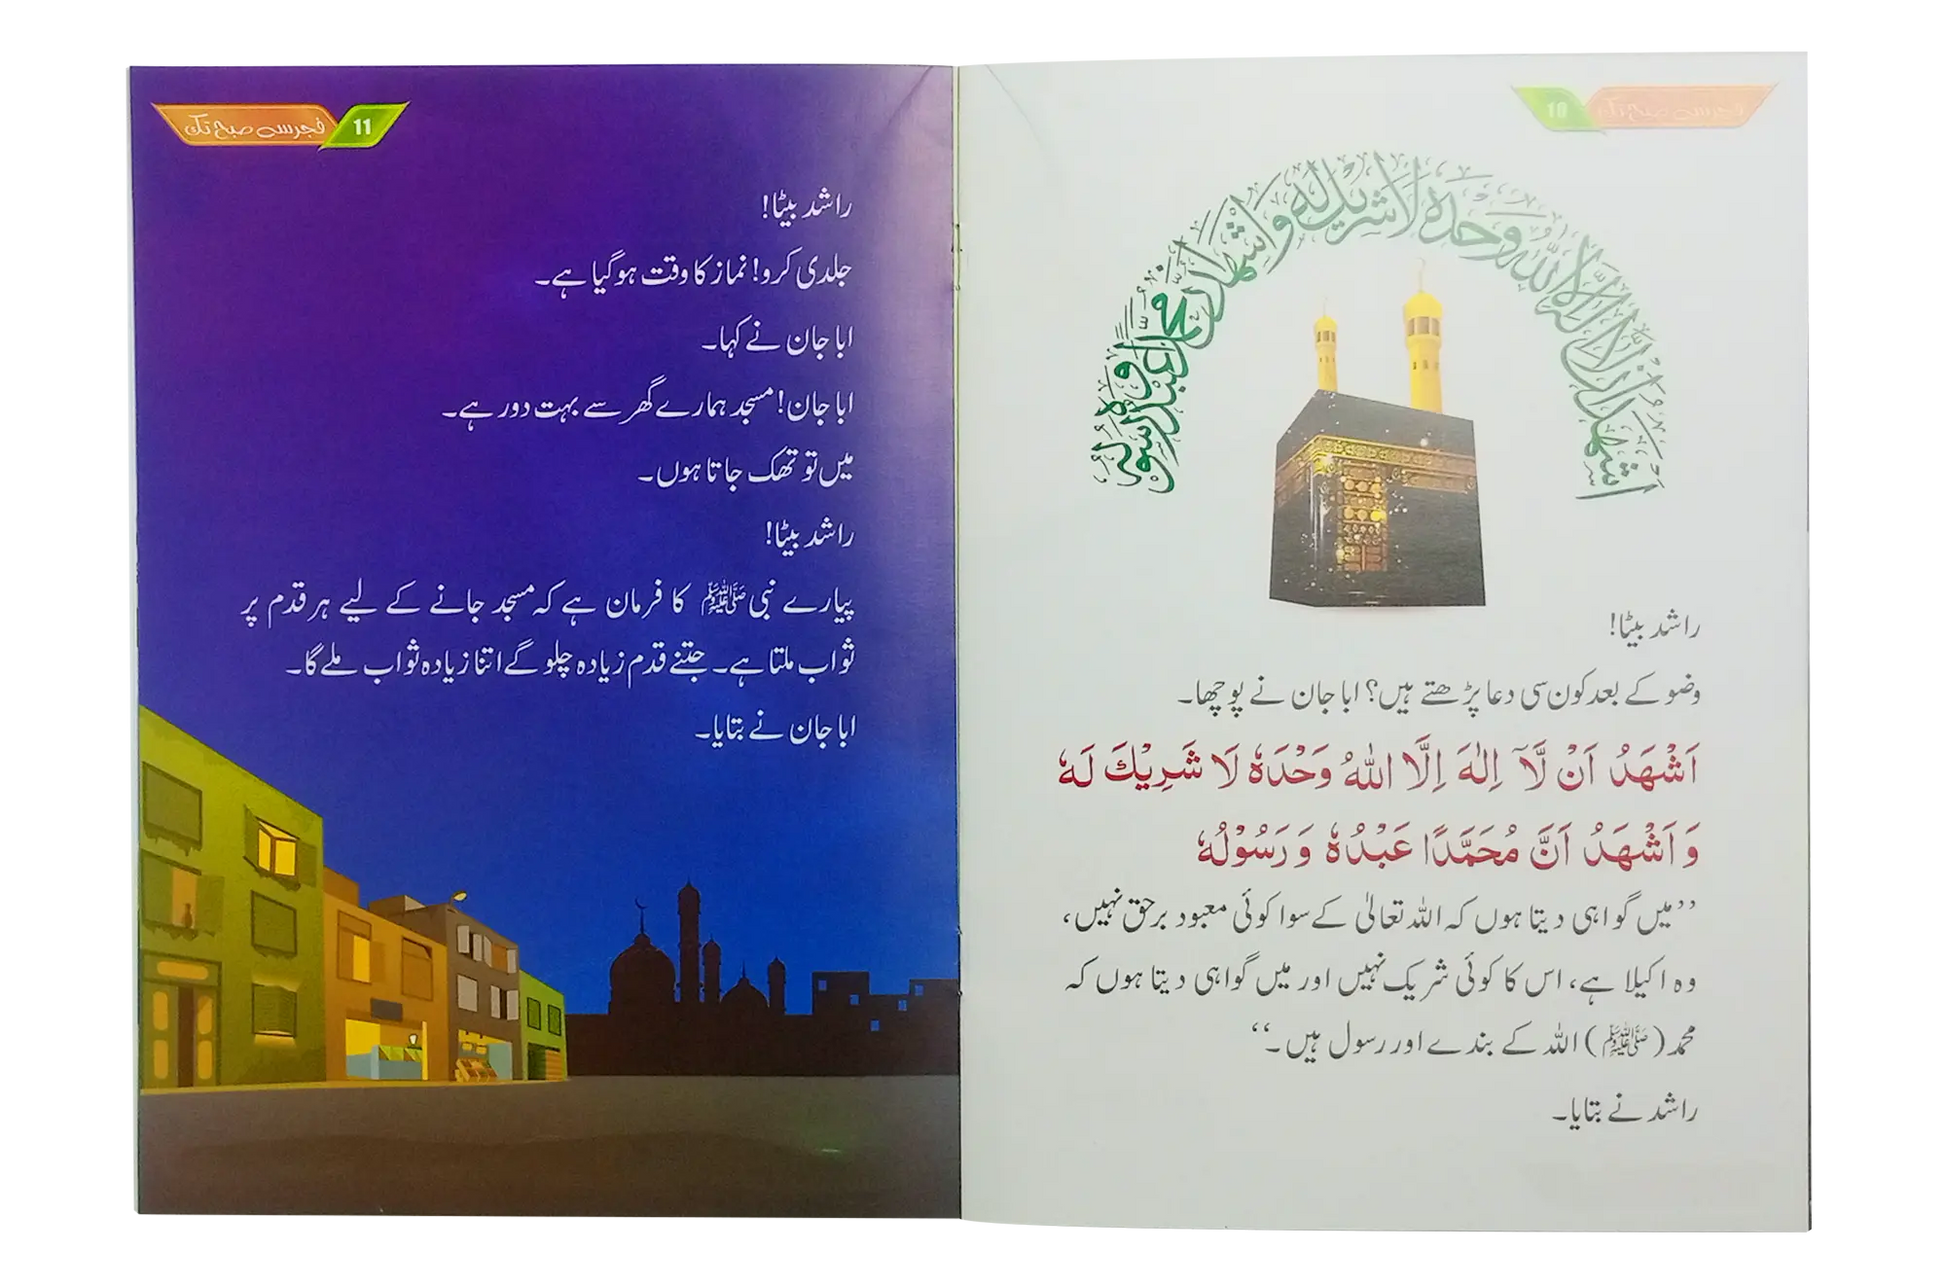 10
فجر سے صبح تک
اشھد ان لا الہ الا اللہ وحدہ لا شریک لہ واشھد ان محمدا عبدہ ورسولہ
راشد بیٹا!
وضو کے بعد کون سی دعا پڑھتے ہیں؟ ابا جان نے پوچھا۔
اَشْهَدُ اَنْ لَّآ اِلٰهَ اِلَّا اللّٰهُ وَحْدَهٗ لَا شَرِيْكَ لَهٗ
وَ اَشْهَدُ اَنَّ مُحَمَّدًا عَبْدُهٗ وَ رَسُوْلُهٗ
’’میں گواہی دیتا ہوں کہ اللہ تعالیٰ کے سوا کوئی معبود برحق نہیں،
وہ اکیلا ہے، اس کا کوئی شریک نہیں اور میں گواہی دیتا ہوں کہ
محمد (ﷺ) اللہ کے بندے اور رسول ہیں۔‘‘
راشد نے بتایا۔
11
فجر سے صبح تک
راشد بیٹا!
جلدی کرو! نماز کا وقت ہو گیا ہے۔
ابا جان نے کہا۔
ابا جان! مسجد ہمارے گھر سے بہت دور ہے۔
میں تو تھک جاتا ہوں۔
راشد بیٹا!
پیارے نبی ﷺ کا فرمان ہے کہ مسجد جانے کے لیے ہر قدم پر
ثواب ملتا ہے۔ جتنے قدم زیادہ چلو گے اتنا زیادہ ثواب ملے گا۔
ابا جان نے بتایا۔